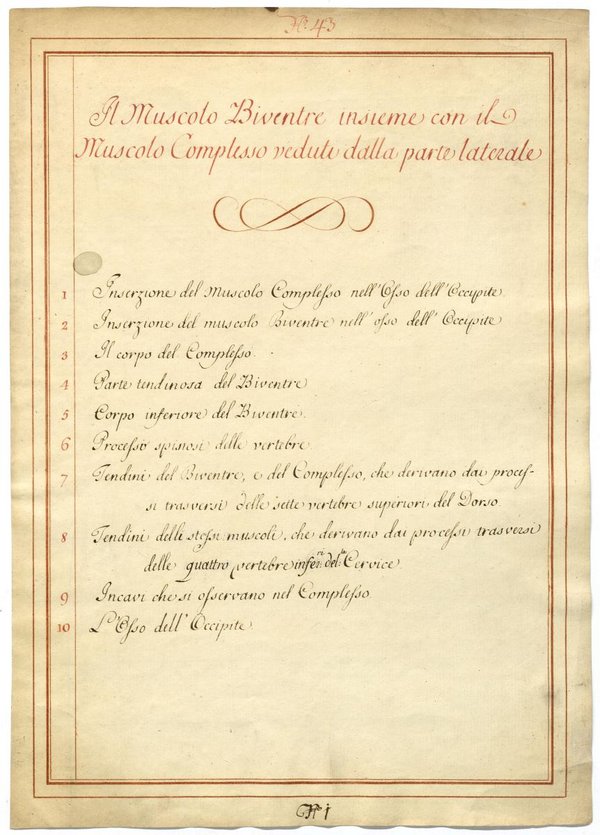 N.º 43
Il Muscolo Biventre insieme con il
Muscolo Complesso veduti dalla parte laterale
1 Inserzione del Muscolo Complesso nell'Osso dell'Occipite
2 Inserzione del muscolo Biventre nell'osso dell'Occipite
3 Il corpo del Complesso.
4 Parte tendinosa del Biventre
5 Corpo inferiore del Biventre.
6 Processi spinosi delle vertebre
7 Tendini del Biventre, e del Complesso, che derivano dai proces-
si trasversi delle sette vertebre superiori del Dorso
8 Tendini delle stessi muscoli, che derivano dai processi trasversi
delle quattro vertebre infer.ri del.la Cervice.
9 Incavi che si osservano nel Complesso
10 L'Osso dell'Occipite
N.º 1